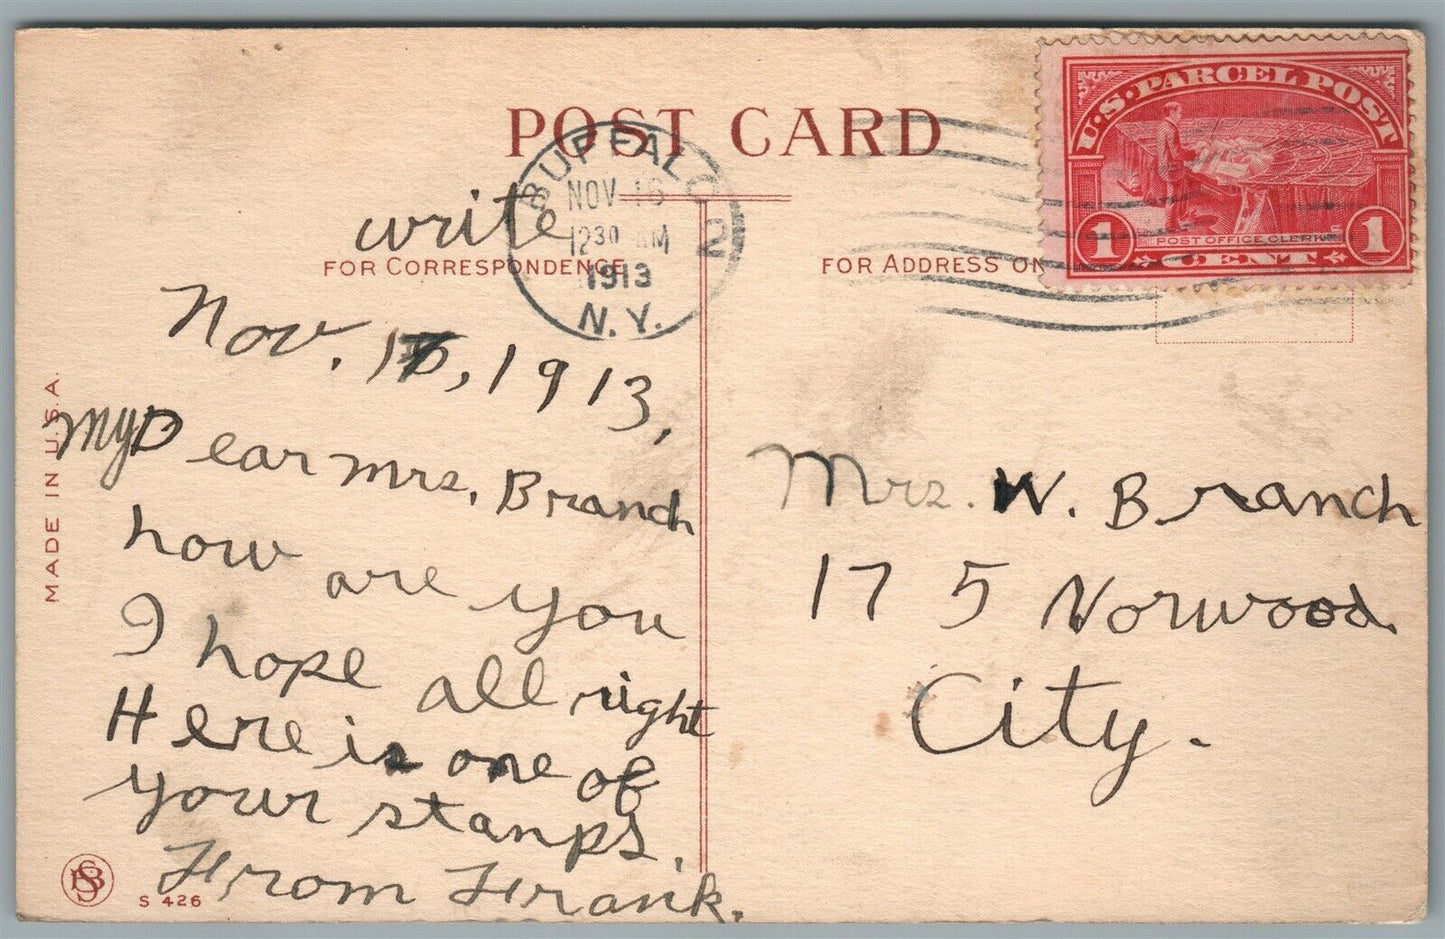 POST CARD
BUFFALO
NOV 16
12 30 AM
1913
N.Y.
2
U.S. PARCEL POST
1 1
POST OFFICE CLERK
CENT
write
FOR CORRESPONDENCE
FOR ADDRESS ON
Nov. 17, 1913,
My Dear Mrs. Branch
how are you
I hope all right
Here is one of
your stamps.
From Frank.
Mrs. W. Branch
175 Norwood.
City.
MADE IN U.S.A.
S 426